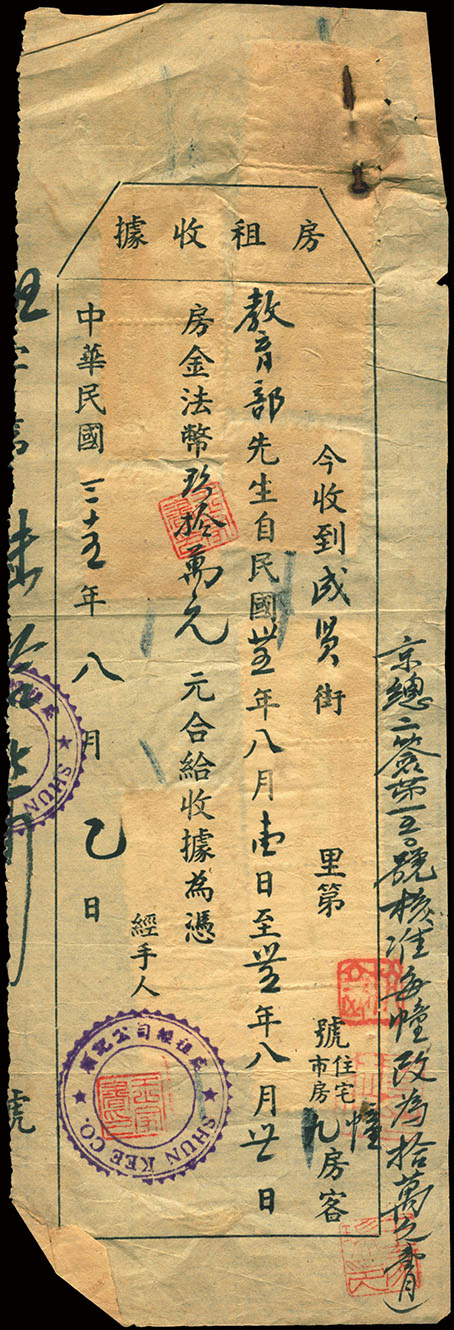 房租收據
京總二簽第一五〇號核准每幢改為拾萬元
今收到成賢街 里第 號 住宅 市房 九幢 房客
教育部先生自民國卅五年八月壹日至卅五年八月卅日
房金法幣玖拾萬元 元合給收據為憑
經手人
順記公司經租處
SHUN KEE CO.
中華民國三十五年八月乙日
SHUN
號